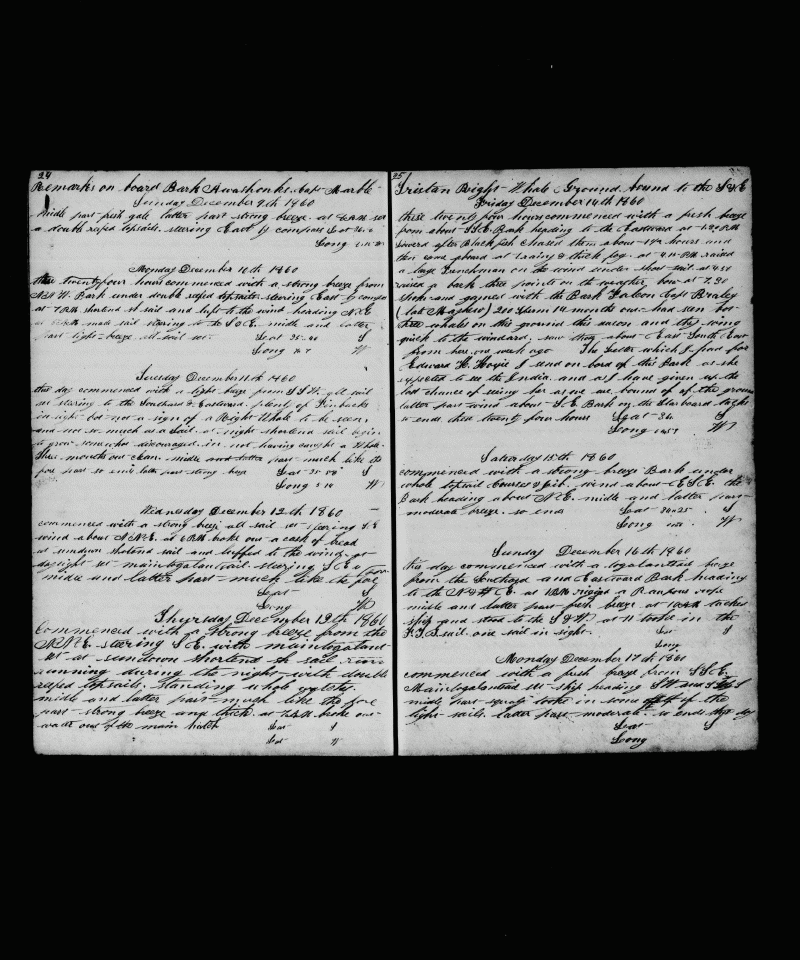 24
Remarks on board Bark Awashonks. Capt Marble
Sunday December 9th 1860
Middle part fresh gale latter part strong breeze at 6 AM set
a double reefed topsails. stearing East by compass Lat 36
Long
Monday December 10th 1860
these twenty four hours commenced with a strong breeze from
N.N.W. Bark under double reefed topsails stearing East by compass
at 7 PM shortend sh sail and luft to the wind heading N.E
made sail stearing to the S.S.E. middle and latter
part light breeze all sail set. Lat 35.40 S
Long 7 W
Tuesday December 11th 1860
this day commenced with a light breeze from S.S.W. all sail
set stearing to the Southard & Eastward. plenty of Finbacks
in sight but not a sign of a Right Whale to be seen,
and not so much as a Sail. at night shortend sail begin
to grow somewhat discouraged in not having caught a Whale
three months out clean. middle and latter part much like the
fore part so ends latter part strong breze Lat 35 S
Long W
Wednesday December 12th 1860
commenced with a strong breeze all sail set stearing S.E
wind about N.N.E. at 6 PM broke out a cask of bread
at sundown shotend sail and luffed to the wind. at
daylight set maintogalantsail stearing S.E.
midle and latter part much like the fore
Lat S
Long W
Thursday December 13th 1860
Commenced with a strong breeze from the
N.N.E. stearing S.E. with maintogalant
set. at sundown shortend sh sail
running during the night with double
reefed topsails. standing whole watches.
midle and latter part much like the fore
part strong breeze and thick. at 7 AM broke out
water out of the main hatch Lat S
Lat W
25
Tristan Right Whale Ground. bound to the S & E
Friday December 14th 1860
these twenty four hours commenced with a fresh breeze
from about S.S.E. Bark heading to the Eastward at 1.30 PM
lowerd after Blackfish chased them about 1 1/2 hours and
then came aboard at 3 rainy & thick fog. at 4 PM raised
a large Finchman on the wind under short sail. at
raised a bark three points on the weather bow at 7.30
spoke and gamed with the Bark Falcon Capt Braley
(late Mayhew) 210 Sperm 14 months out. had seen but
three whales on this ground this season and they going
quick to the windard, saw them about East South East
from her one week ago The Letter which I had for
Edward H. Hoxie I send on bord of this Bark as she
expected to see the India. and as I have given up the
last chance of seeing her as we are bound of of the ground
latter part wind about S.E. Bark on the starboard tacks
so ends these twenty four hours Lat 36. S
Long W
Saturday 15th 1860
commenced with a strong breeze Bark under
whole topsail Courses & jib. wind about E.S.E. the
Bark heading about N.E. midle and latter part
moderate breeze. so ends Lat 34=25 S
Long W
Sunday December 16th 1860
this day commenced with a togalantsail breeze
from the Southard and Eastward Bark heading
to the N & E. at 1 PM rigged a
midle and latter part fresh breeze at 10 AM tacked
ship and stood to the S & W. at 11 took in the
F.T.G. sail. one sail in sight. Lat S
Long
Monday December 17th 1860
commenced with a fresh breeze from S.S.E.
Maintogalantsail set ship heading S.W. and S.W by S
midle part squaly took in some of the
light sails. latter part moderate. so ends this day
Lat S
Long